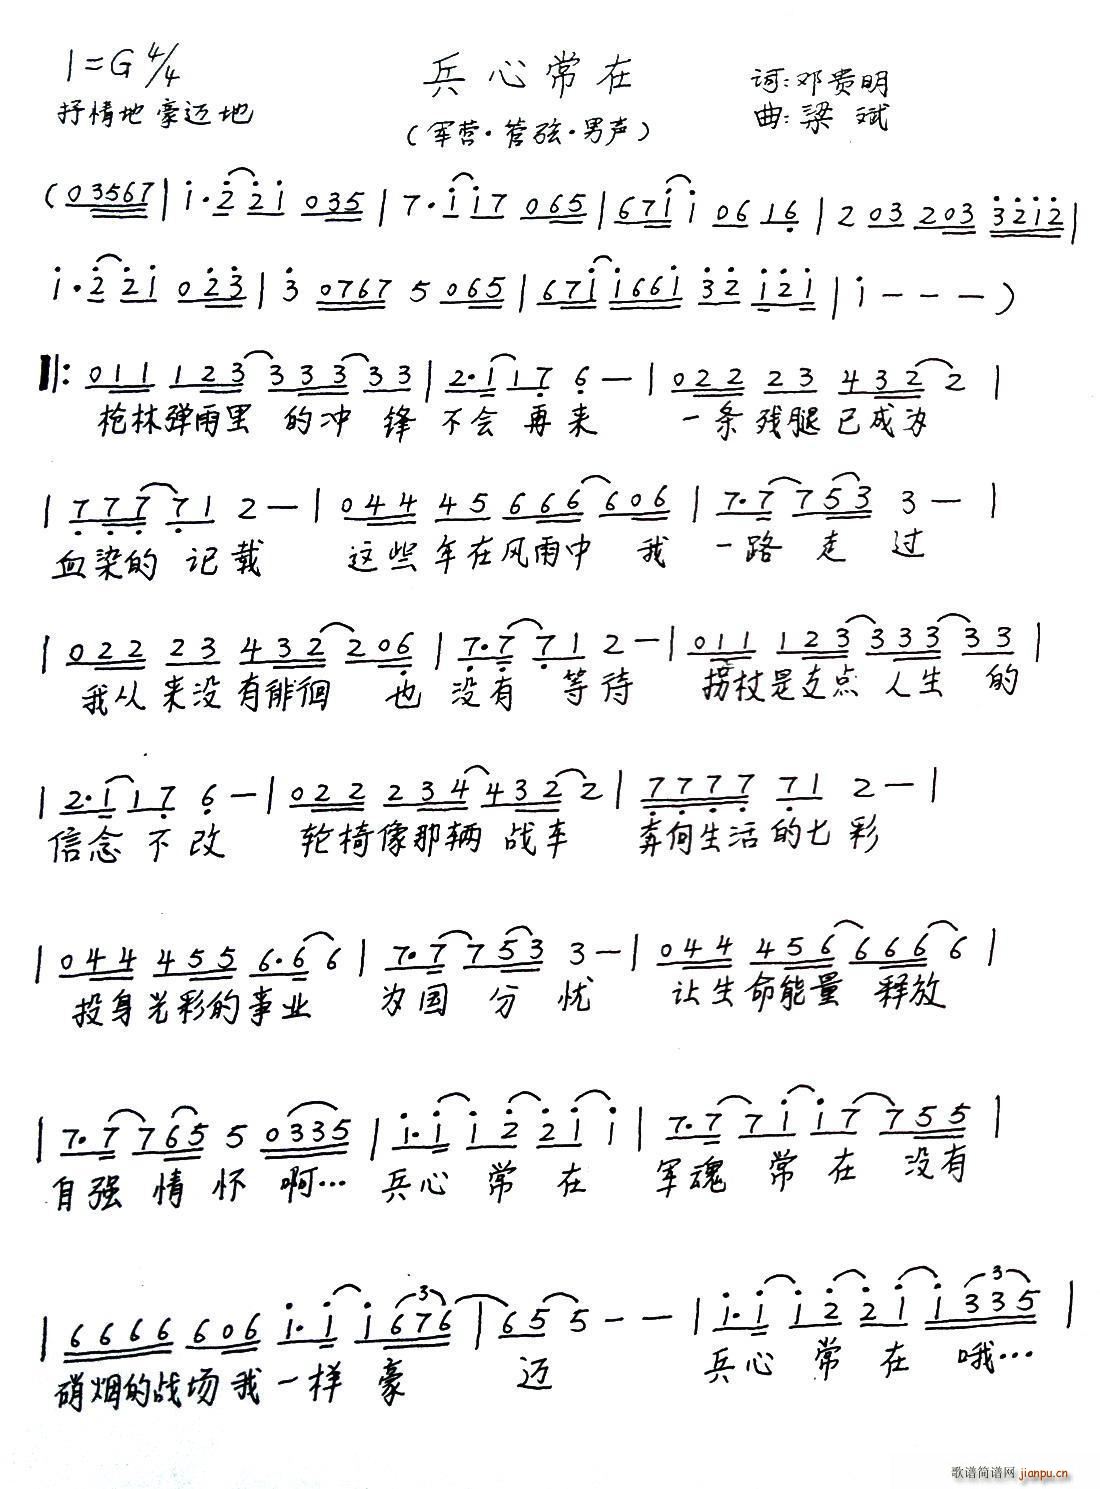 1=G 4/4
兵心常在
词:邓贵明
抒情地 豪迈地
(军营·管弦·男声)
曲:梁斌
(03567|i·2̇2̇i 035|7·ii7 065|67ii 0616̣|2 03 203 3̇2̇i2̇|
i·2̇2̇i 02̇3̇|3̇ 0767 5 065|67ii66i 3̇2̇ i2̇i|i---)
‖:011 123 333 33|2·117̣ 6̣-|022 23 432 2|
枪林弹雨里 的冲 锋 不会 再 来 一条残腿已成为
|7̣7̣7̣7̣1 2-|044 45 666 606|7·7 753 3-|
血染的 记载 这些 年在风雨中 我 一路 走 过
|022 23 432 206̣|7̣·7̣7̣1 2-|011 123 333 33|
我从 来没有徘徊 也 没有 等待 拐杖是支点 人生 的
|2·117̣ 6̣-|022 234 432 2|7̣7̣7̣7̣ 7̣1 2-|
信念 不 改 轮椅像那辆 战车 奔向生活的七彩
|044 455 6·66|7·7 753 3-|044 456 666 6|
投身光彩的事业 为国 分 忧 让生命能量 释放
|7·7 765 5 0335|i·ii2̇2̇ii|7·77ii7 755|
自强 情 怀 啊… 兵心 常 在 军魂 常 在 没有
|6666 606 i·ii676|655--|i·ii2̇2̇ii335|
3
3
硝烟的战场我一样 豪 迈 兵心 常 在 哦…
歌谱简谱网 jianpu.cn